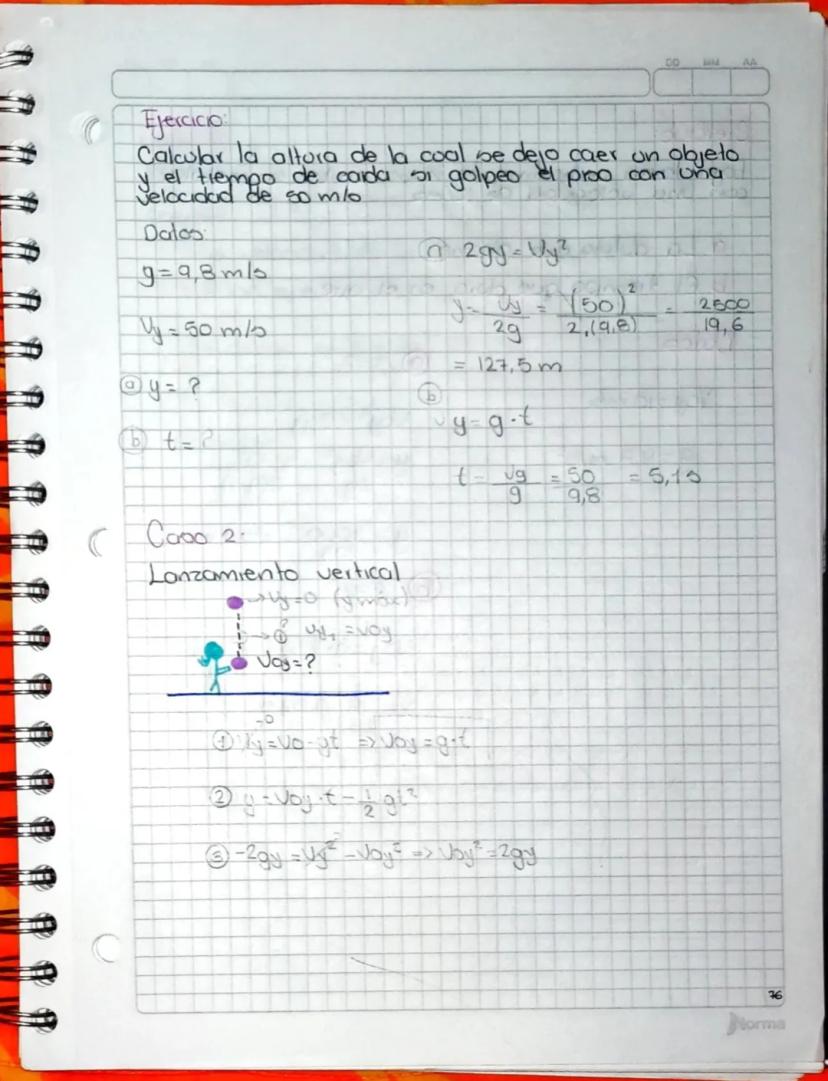 DD MM AA
Ejercicio:
Calcular la altura de la coal se dejo caer un objeto
y el tiempo de caida si golpeo el piso con una
velocidad de 50 m/s
Datos:
g = 9,8 m/s
Vy = 50 m/s
ⓐ y = ?
ⓑ t = ?
2gy = Vy²
y = Vy/2g = (50)²/2,(9,8) = 2500/19,6
= 127,5 m
ⓑ
vy = g·t
t = vg/g = 50/9,8 = 5,1s
Caso 2:
Lanzamiento vertical
→ Vy=0 (ymáx)
→ ① vy₁ = voy
Voy = ?
-0
① Vy = Vo - gt => Voy = g·t
② y = Voy·t - 1/2 gt²
③ -2gy = Vy² - Voy² => Voy² = 2gy
76
Norma